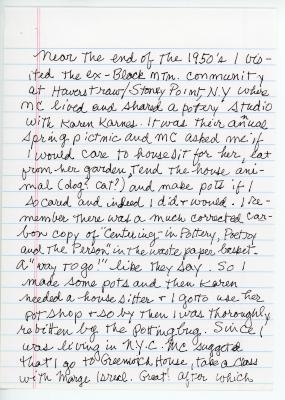 Near the end of the 1950's I vis-
ited the ex-Black Mtn. community
at Haverstraw/Stoney Point, N.Y where
MC lived and shared a potery studio
with Karen Karnes. It was their annual
Spring pictnic and MC asked me if
I would care to housesit for her, eat
from her garden, tend the house ani-
mal (dog? cat?) and make pots if I
so card and indeed I did + would. I re-
member there was a much corrected car-
bon copy of "Centering" in Pottery, Poetry
and the Person" in the waste paper basket -
a "way to go!" like they say. So I
made some pots and then Karen
needed a house sitter + I got to use her
pot shop + so by then I was thoroughly
robitten by the Potting bug. Since I
was living in N.Y.C. MC suggested
that I go to Greenwich House, take a class
with Marge Isreal. Great! After which